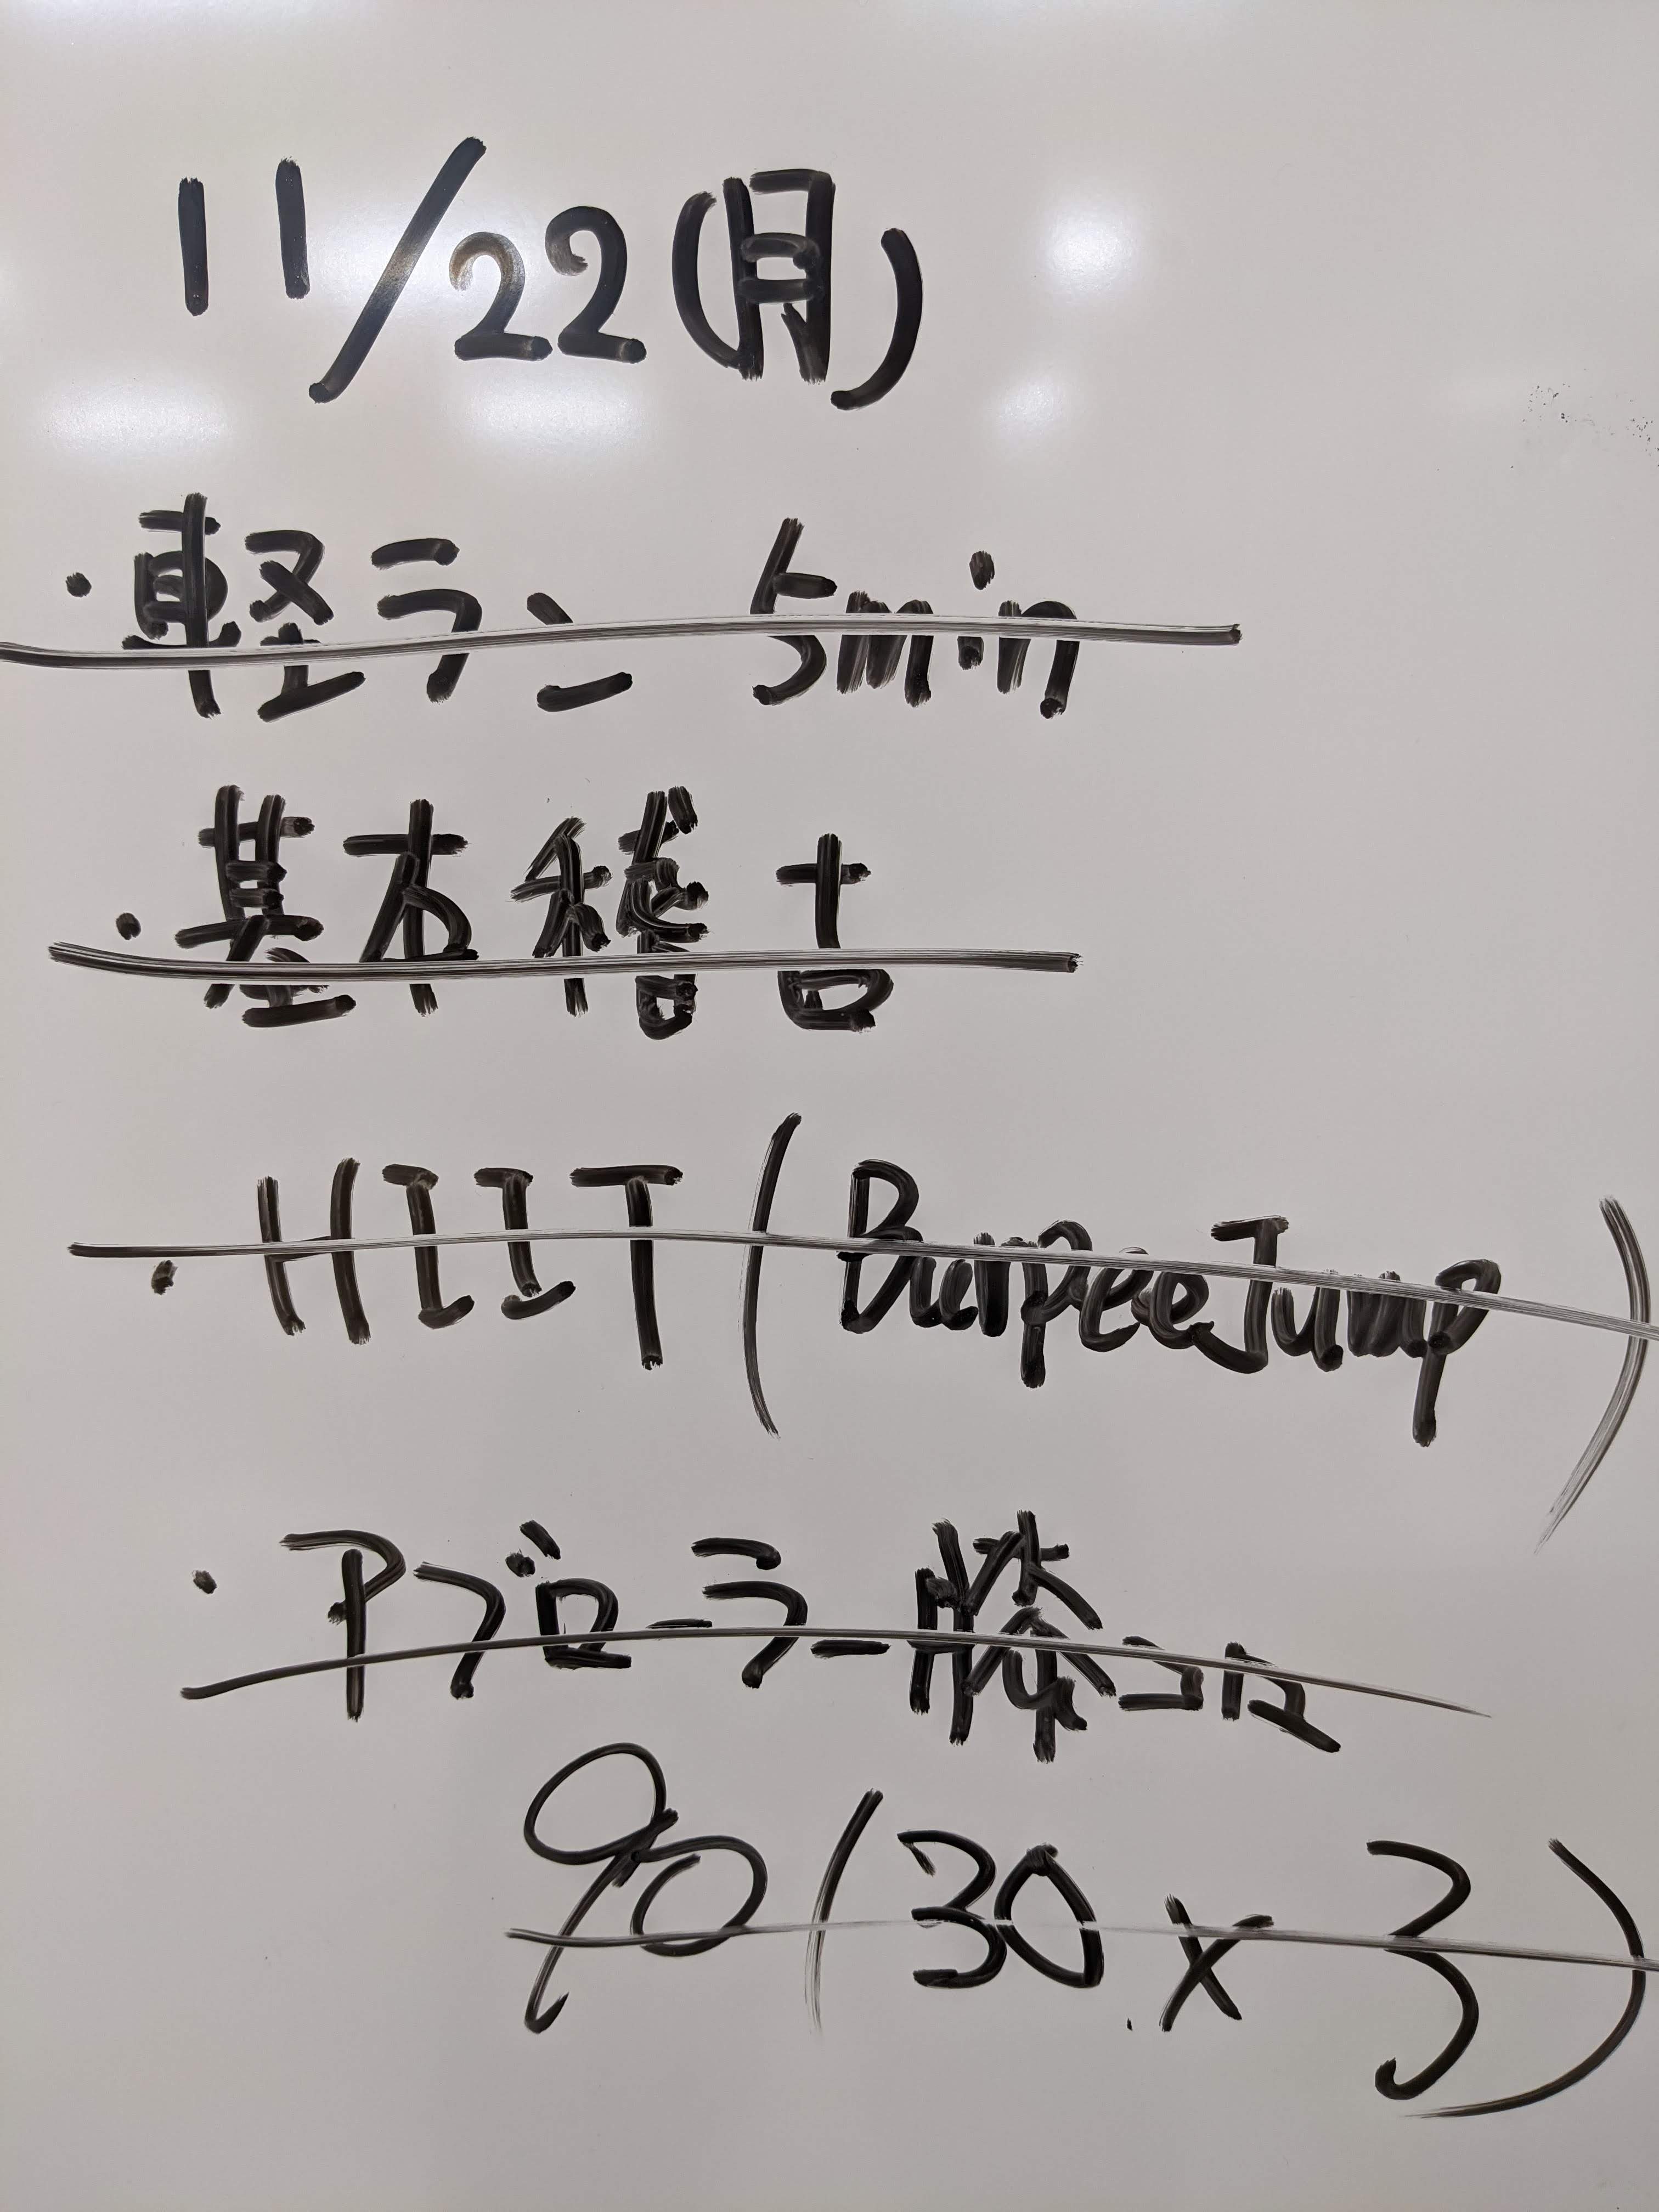 11/22(月)
・軽ラン 5min
・基本稽古
・HIIT (Burpee Jump)
・Pブローラー膝コロ
90(30×3)